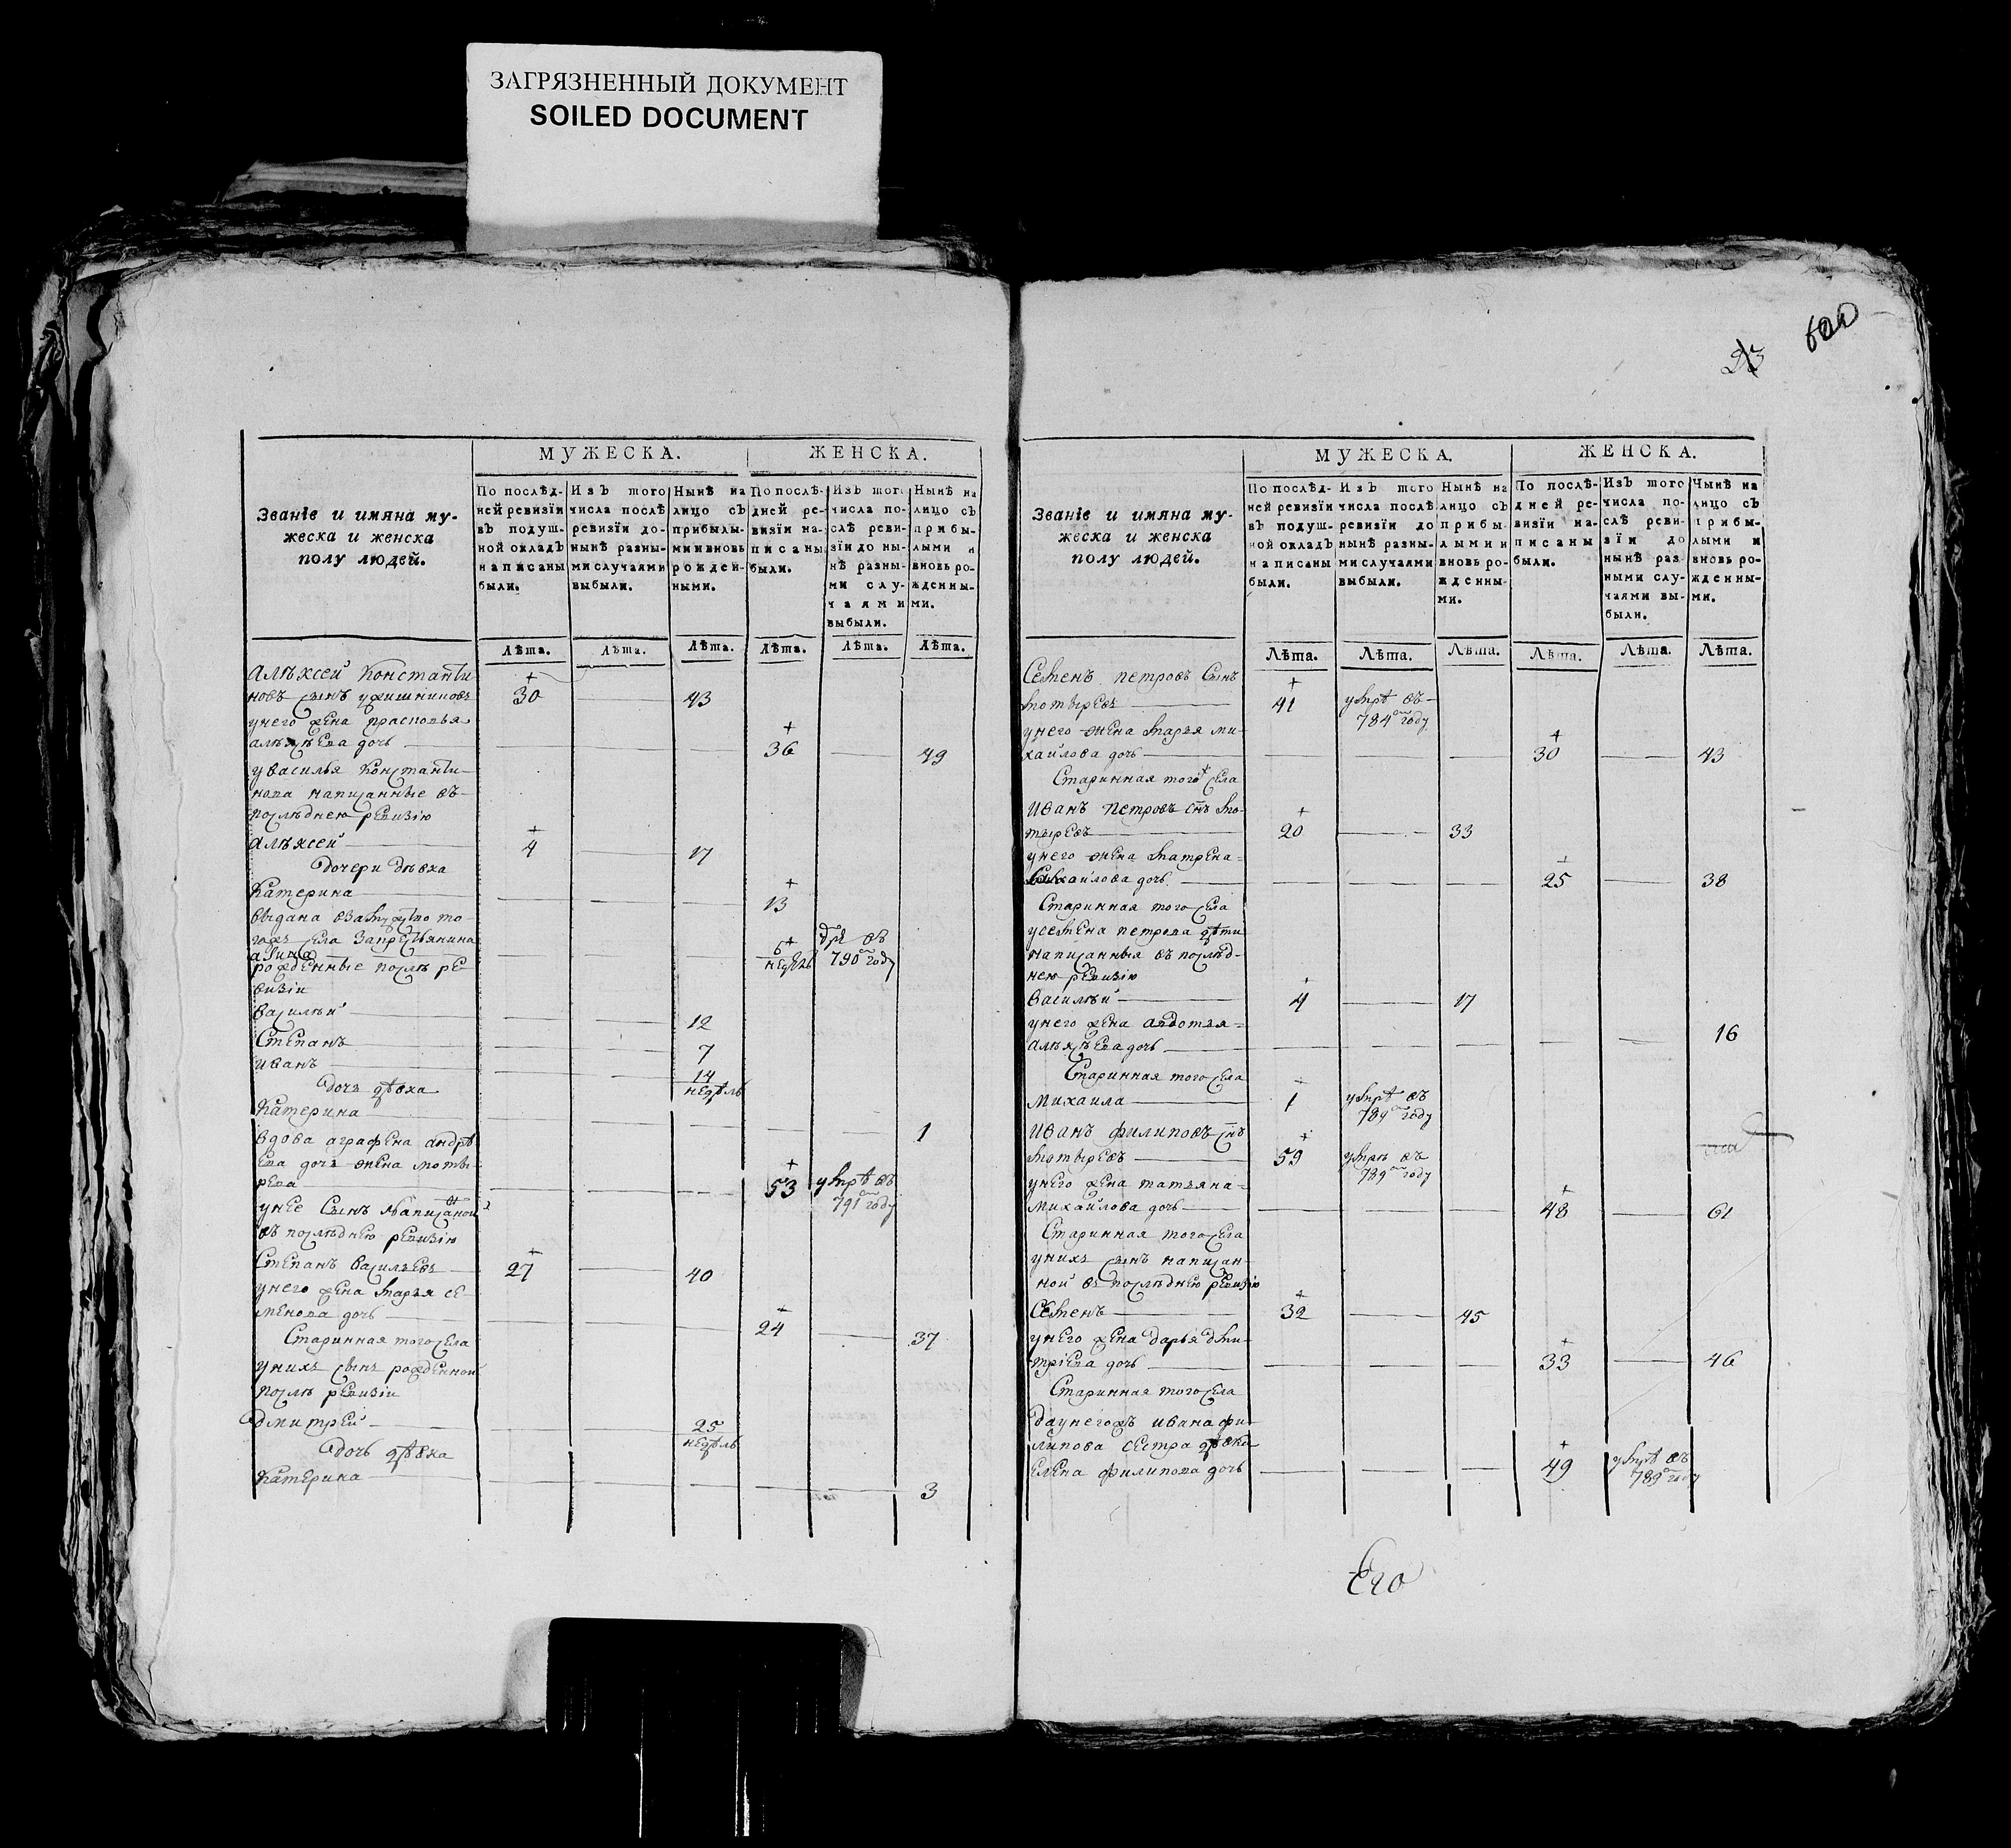 ЗАГРЯЗНЕННЫЙ ДОКУМЕНТ
SOILED DOCUMENT
МУЖЕСКА.
ЖЕНСКА.
Званіе и имяна му-
жеска и женска
полу людей.
По послѣд-
ней ревизіи
въ подуш-
ной окладъ
написаны
были.
Изъ того
числа послѣ
ревизїи до-
нынѣ разны-
ми случаями
выбыли.
Нынѣ на
лицо съ
прибылы-
ми и вновь
рожден-
ными.
По послѣ-
дней ре-
визїи на-
писаны
были.
Изъ того
числа по-
слѣ реви-
зїи до ны-
нѣ разны-
ми слу-
чаями
выбыли.
Нынѣ на
лицо съ
прибы-
лыми и
вновь ро-
жденны-
ми.
Лѣта. Лѣта. Лѣта. Лѣта. Лѣта. Лѣта.
Алѣксей Константи
новъ сынъ 30 43
унего жена прасковья
алѣксѣева дочь 36 49
уВасилья Константи-
нова написанные въ-
послѣднею ревизію
алѣксей 4 17
дочери дѣвка
Катерина 13
выдана взамужство то-
гожъ села
6 недель 790 году
рожденные послѣ ре
визіи
василѣй 12
Степанъ 7
иванъ 14 недѣль
дочь дѣвка
Катерина 1
вдова аграфена андрѣ
ева дочь жена моты-
рева 53 умрѣ въ 791 году
унее сынъ написаной
въ послѣднею ревизію
Степанъ васильевъ 27 40
унего жена марья се
менова дочь 24 37
Старинная того села
унихъ сынъ рожденной
послѣ ревизіи
дмитрей 25 недѣль
дочь дѣвка
Катерина 3
600
МУЖЕСКА.
ЖЕНСКА.
Званіе и имяна му-
жеска и женска
полу людей.
По послѣд-
ней ревизїи
въ подуш-
ной окладъ
написаны
были.
Изъ того
числа послѣ
ревизїи до
нынѣ разны-
ми случаями
выбыли.
Нынѣ на
лицо съ
прибы-
лыми и
вновь ро-
жденны-
ми.
По послѣ-
дней ре-
визїи на-
писаны
были.
Изъ того
числа по-
слѣ реви-
зїи до
нынѣ раз-
ными слу-
чаями вы-
были.
Нынѣ на
лицо съ
прибы-
лыми и
вновь ро-
жденны-
ми.
Лѣта. Лѣта. Лѣта. Лѣта. Лѣта. Лѣта.
Семенъ петровъ сынъ
мотыревъ 41 умрѣ въ 784 году
унего жена марья ми-
хайлова дочь 30 43
Старинная того села
иванъ петровъ снъ мо-
тыревъ 20 33
унего жена матрена
михайлова дочь 25 38
Старинная того села
усемена петрова дѣти
написанныя въ послѣд-
нею ревизію
василѣй 4 17
унего жена авдотья
алѣксѣева дочь 16
Старинная того села
михаила 1 умрѣ въ 789 году
иванъ филиповъ снъ
мотыревъ 59 умрѣ въ 789 году
унего жена татьяна
михайлова дочь 48 61
Старинная того села
унихъ сынъ написан-
ной въ послѣднею ревизію
Семенъ 32 45
унего жена дарья дми-
тріева дочь 33 46
Старинная того села
даунегожъ ивана фи-
липова сестра дѣвка
елена филипова дочь 49 умрѣ въ 789 году
Его